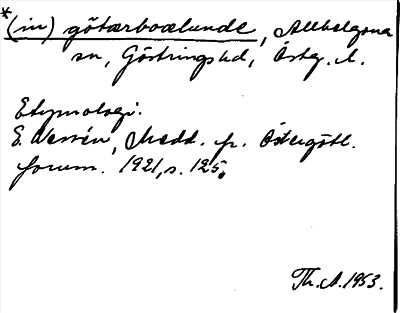 *(in) götærboælunde, Allhelgona
sn, Göstrings hd, Östg. l.
Etymologi:
E. Wessén, Medd. fr. Östergötl.
fornm. 1921, s. 125.
Th. A. 1953.